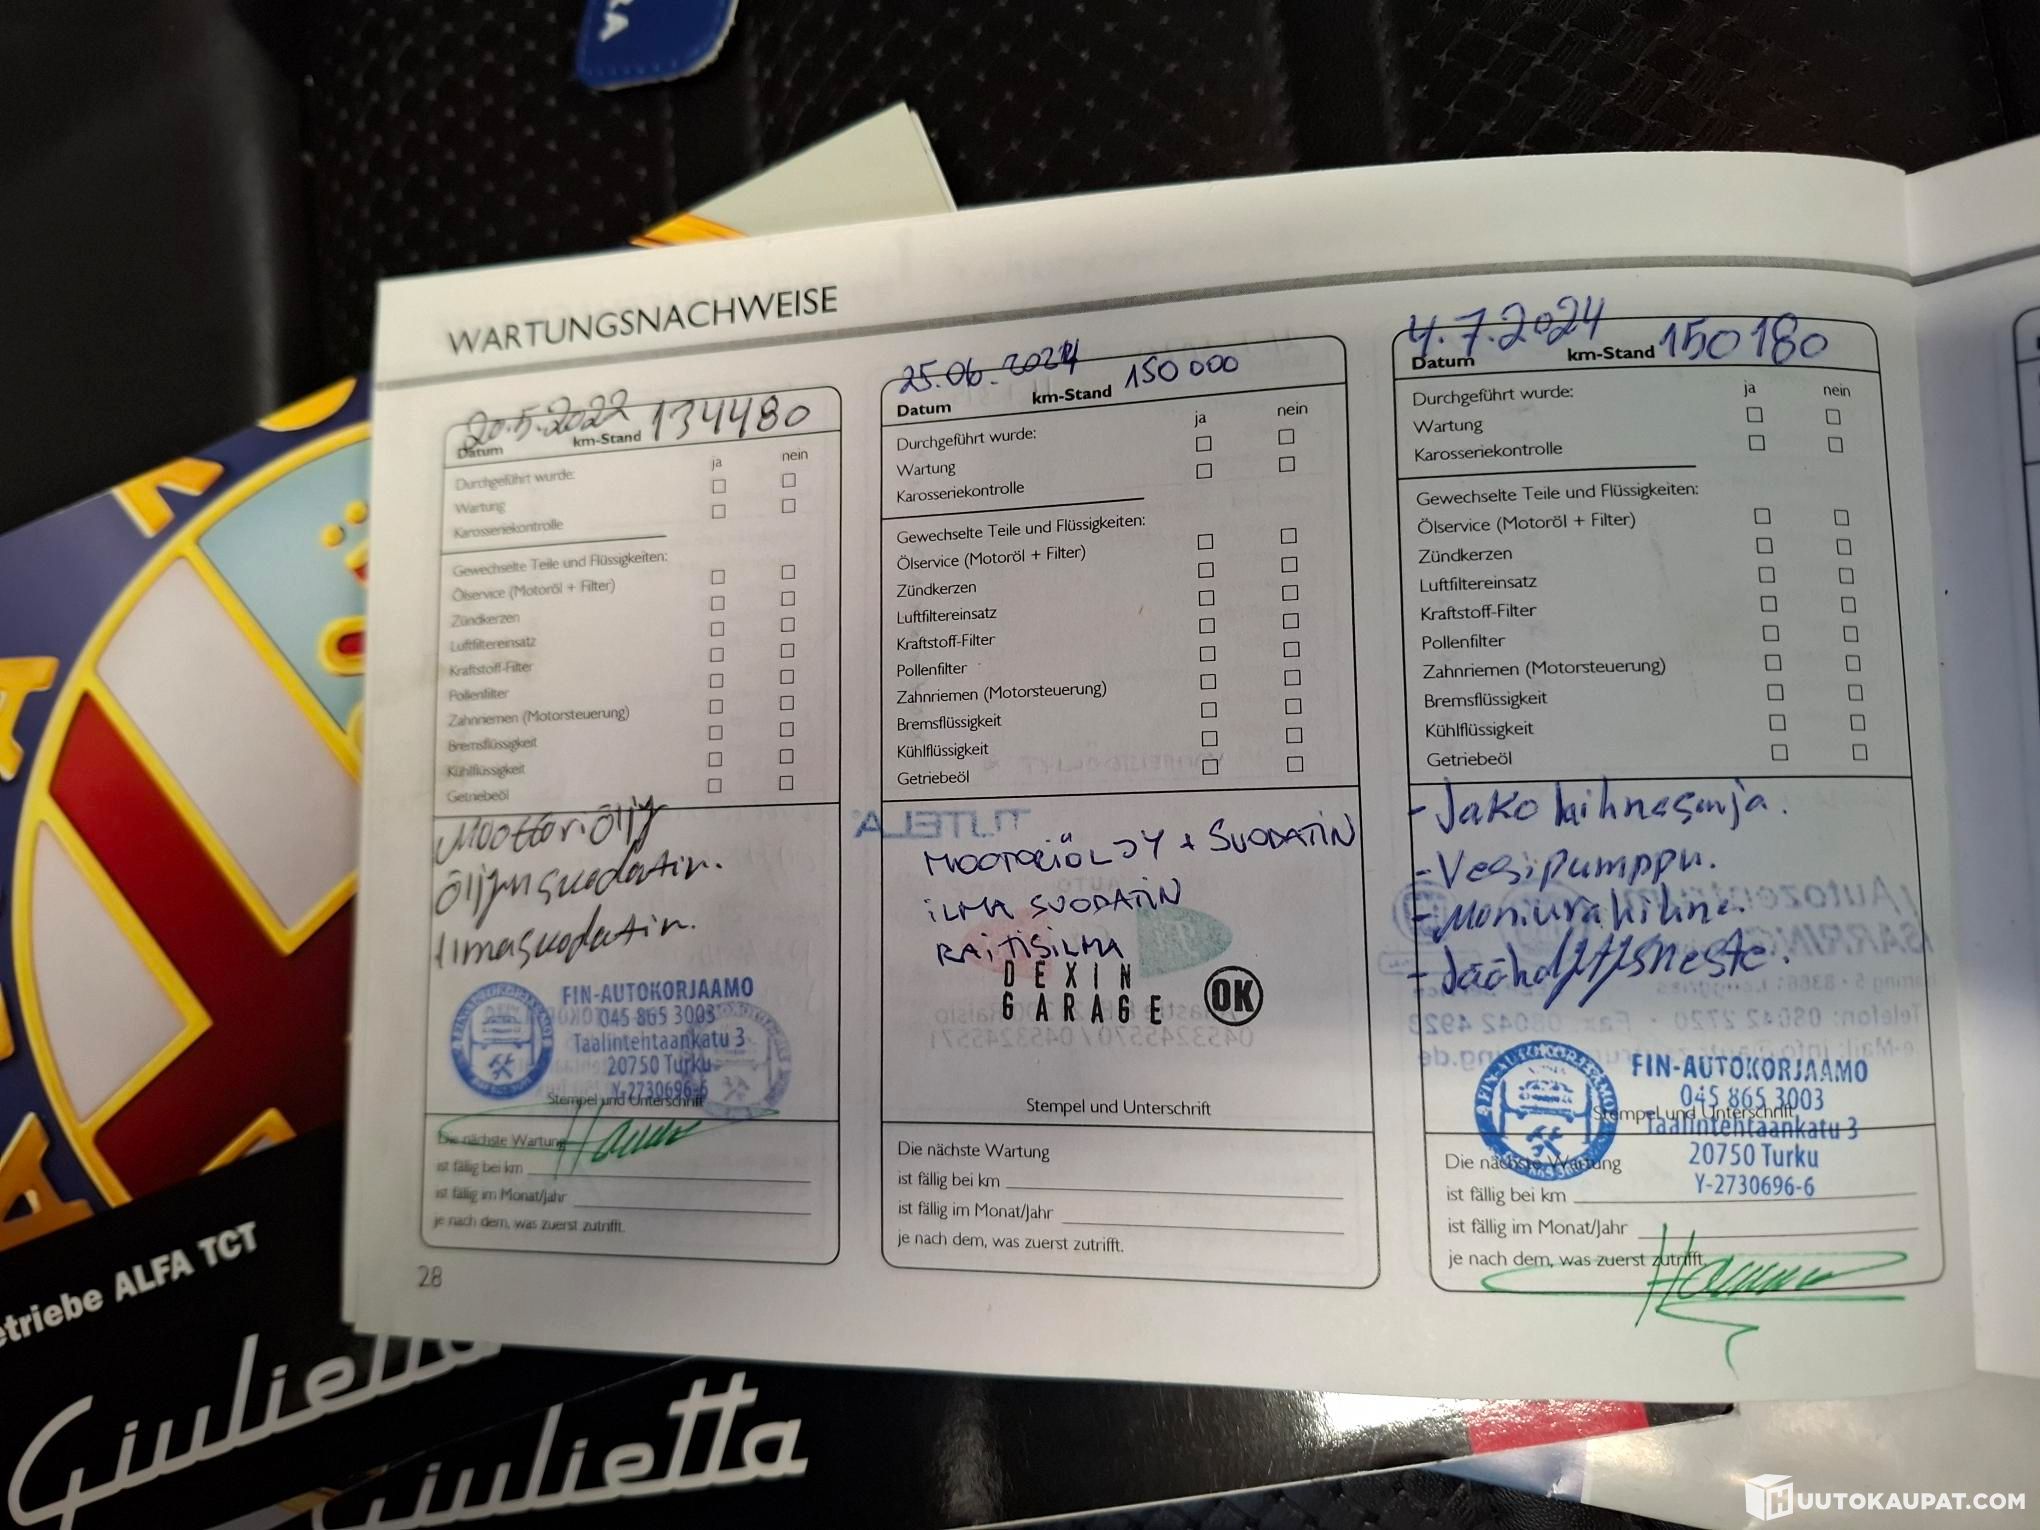 WARTUNGSNACHWEISE
20.5.2022 134480
Datum km-Stand
ja nein
Durchgeführt wurde:
Wartung
Karosseriekontrolle
Gewechselte Teile und Flüssigkeiten:
Ölservice (Motoröl + Filter)
Zündkerzen
Luftfiltereinsatz
Kraftstoff-Filter
Pollenfilter
Zahnriemen (Motorsteuerung)
Bremsflüssigkeit
Kühlflüssigkeit
Getriebeöl
Moottoriöljy
Öljynsuodatin.
Ilmasuodatin.
FIN-AUTOKORJAAMO
045 865 3003
Taalintehtaankatu 3
20750 Turku
Y-2730696-6
Stempel und Unterschrift
Die nächste Wartung
ist fällig bei km
ist fällig im Monat/Jahr
je nach dem, was zuerst zutrifft.
28
25.06.2024 150 000
Datum km-Stand
ja nein
Durchgeführt wurde:
Wartung
Karosseriekontrolle
Gewechselte Teile und Flüssigkeiten:
Ölservice (Motoröl + Filter)
Zündkerzen
Luftfiltereinsatz
Kraftstoff-Filter
Pollenfilter
Zahnriemen (Motorsteuerung)
Bremsflüssigkeit
Kühlflüssigkeit
Getriebeöl
TUTELA
MOOTORIÖLJY + SUODATIN
ILMA SUODATIN
RAITISILMA
DEXIN
GARAGE OK
Stempel und Unterschrift
Die nächste Wartung
ist fällig bei km
ist fällig im Monat/Jahr
je nach dem, was zuerst zutrifft.
4.7.2024 150180
Datum km-Stand
ja nein
Durchgeführt wurde:
Wartung
Karosseriekontrolle
Gewechselte Teile und Flüssigkeiten:
Ölservice (Motoröl + Filter)
Zündkerzen
Luftfiltereinsatz
Kraftstoff-Filter
Pollenfilter
Zahnriemen (Motorsteuerung)
Bremsflüssigkeit
Kühlflüssigkeit
Getriebeöl
- Jakohihnasarja.
- Vesipumppu.
- Moniurahihna.
- Jäähdytysneste.
FIN-AUTOKORJAAMO
045 865 3003
Stempel und Unterschrift
Taalintehtaankatu 3
20750 Turku
Y-2730696-6
Die nächste Wartung
ist fällig bei km
ist fällig im Monat/Jahr
je nach dem, was zuerst zutrifft.
etriebe ALFA TCT
Giulietta
Giulietta
HUUTOKAUPAT.COM